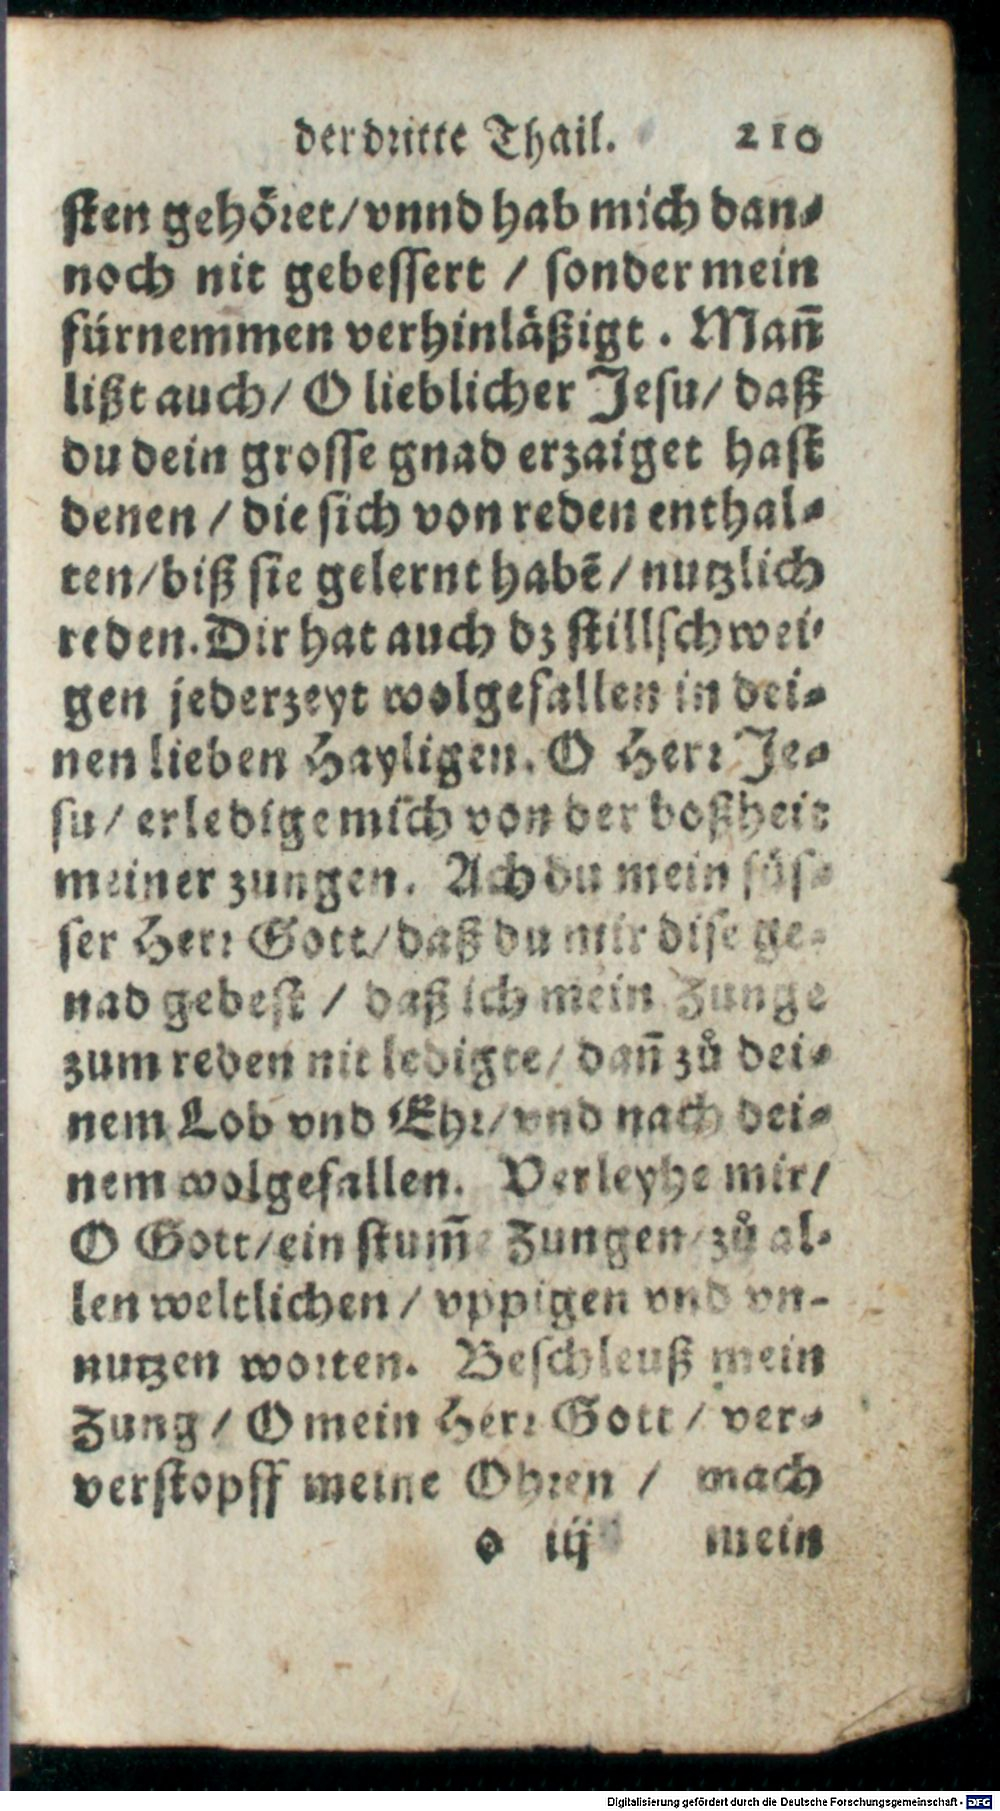 der dritte Thail. 210
sten gehöret/vnnd hab mich dan-
noch nit gebessert / sonder mein
fürnemmen verhinläßigt. Man̄
lißt auch/ O lieblicher Jesu/ daß
du dein grosse gnad erzaiget hast
denen / die sich von reden enthal-
ten/biß sie gelernt habē/ nutzlich
reden. Dir hat auch dz stillschwei-
gen jederzeyt wolgefallen in dei-
nen lieben Hayligen. O Herr Je-
su/ erledige mich von der boßheit
meiner zungen. Ach du mein süs-
ser Herr Gott/daß du mir dise ge-
nad gebest / daß ich mein Zunge
zum reden nit ledigte/ dan̄ zů dei-
nem Lob vnd Ehr/vnd nach dei-
nem wolgefallen. Verleyhe mir/
O Gott/ein stum̄e Zungen zů al-
len weltlichen / vppigen vnd vn-
nutzen worten. Beschleuß mein
Zung / O mein Herr Gott / ver-
verstopff meine Ohren / mach
o iij mein
Digitalisierung gefördert durch die Deutsche Forschungsgemeinschaft - DFG